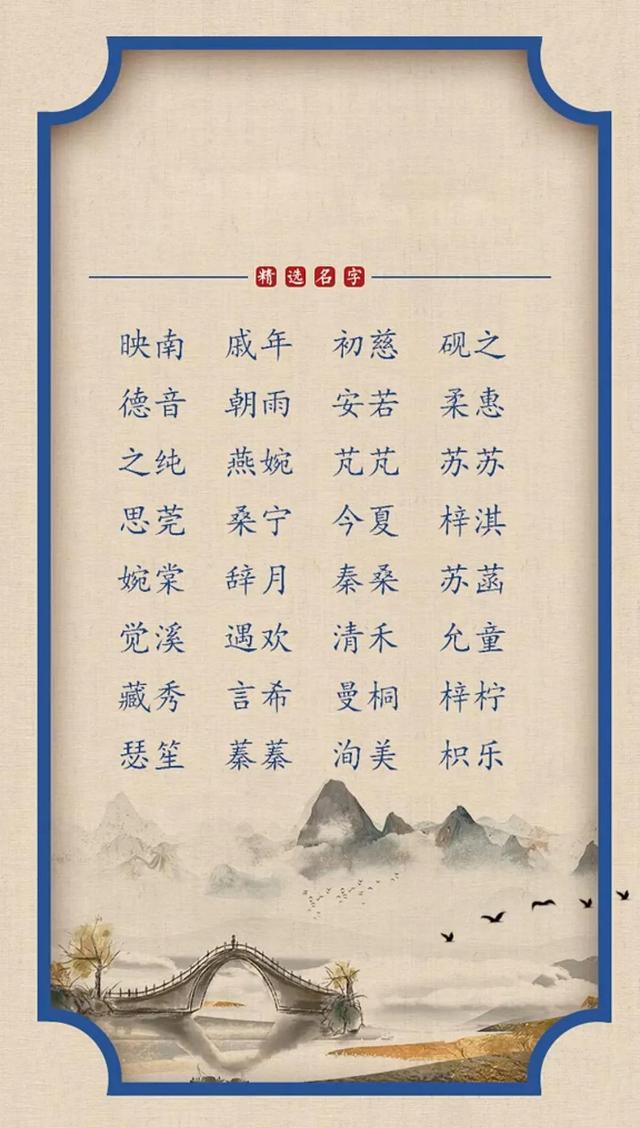 精选名字
映南 戚年 初慈 砚之
德音 朝雨 安若 柔惠
之纯 燕婉 芃芃 苏苏
思莞 桑宁 今夏 梓淇
婉棠 辞月 秦桑 苏菡
觉溪 遇欢 清禾 允童
藏秀 言希 曼桐 梓柠
瑟笙 蓁蓁 洵美 枳乐